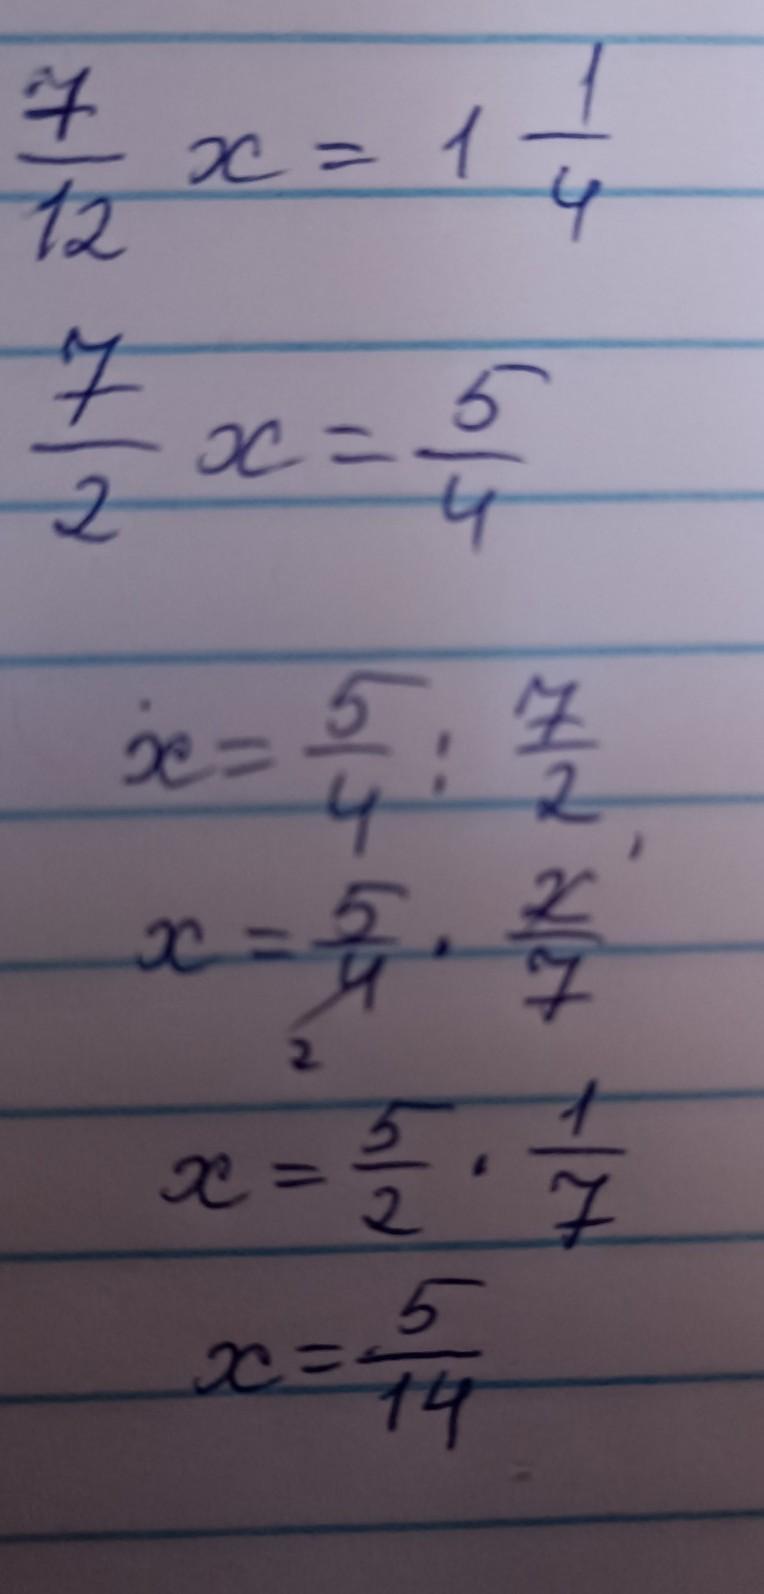 7/12 x = 1 1/4
7/2 x = 5/4
x = 5/4 : 7/2
x = 5/4 2 · 2/7 1
x = 5/2 · 1/7
x = 5/14